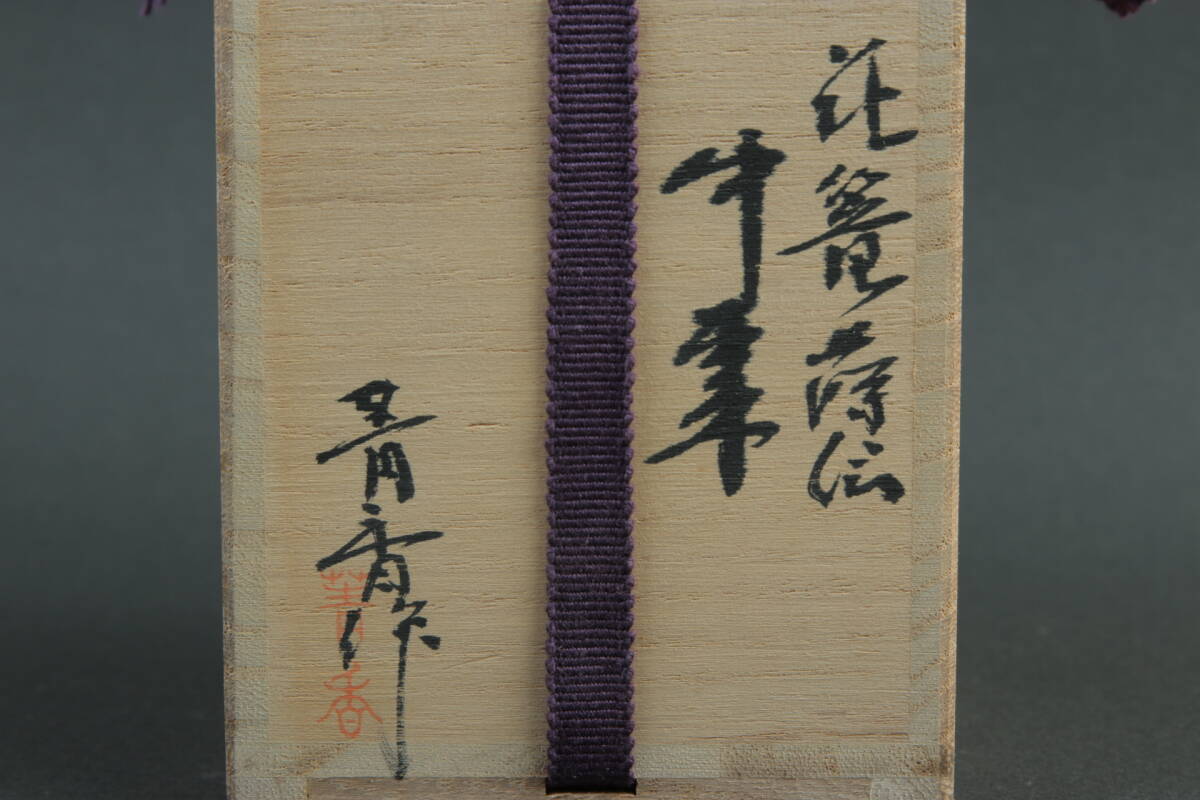 花籠蒔絵
中棗
青香作
青香